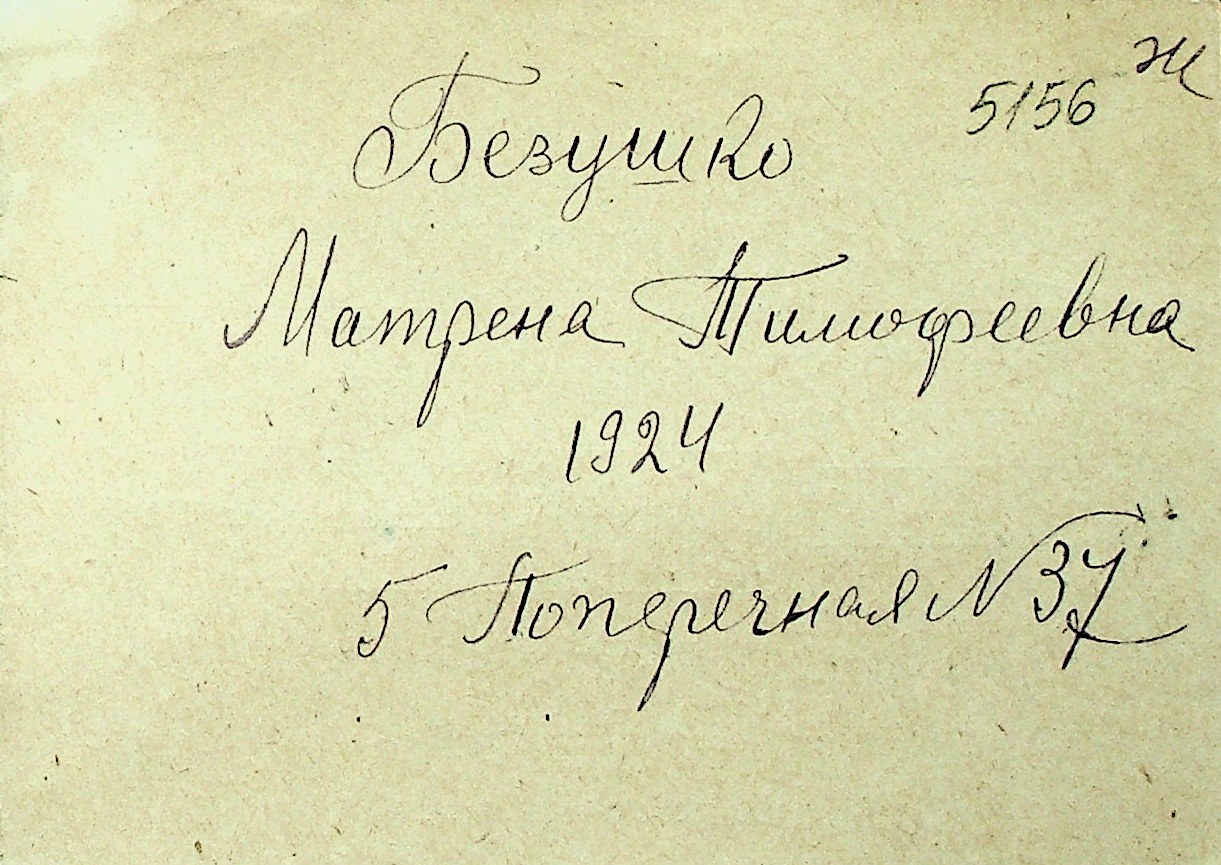 5156 ж
Безушко
Матрена Тимофеевна
1924
5 Поперечная N 37